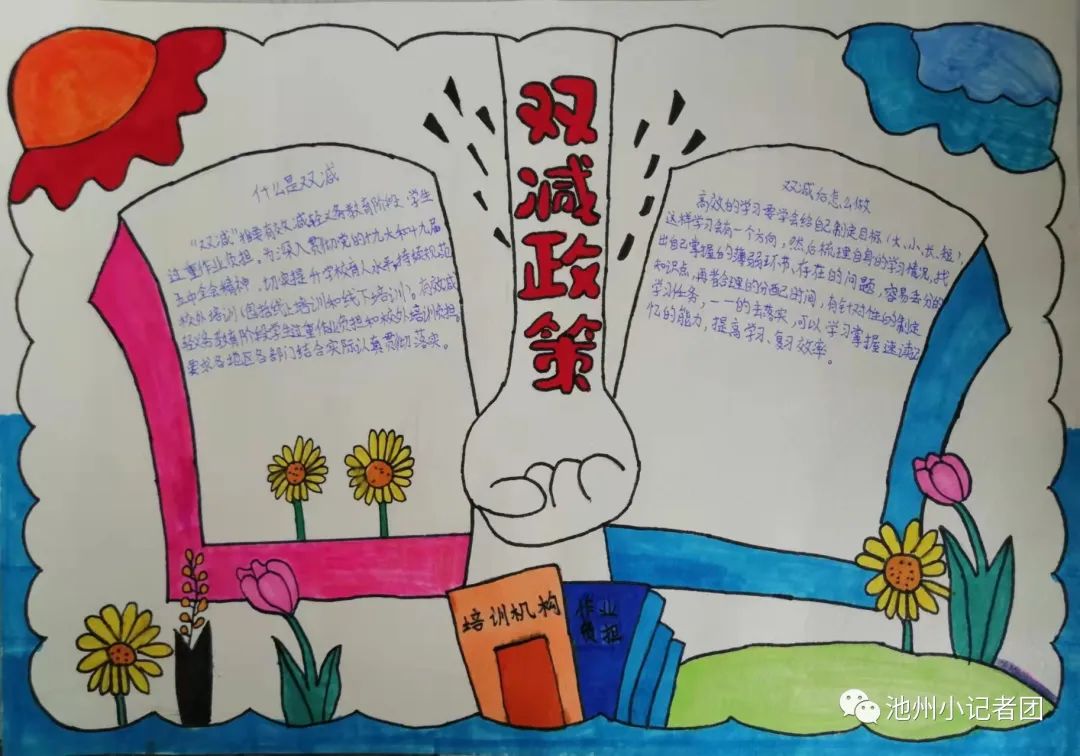 双减政策
什么是双减
"双减"指要有效减轻义务教育阶段学生
过重作业负担。为深入贯彻党的十九大和十九届
五中全会精神,切实提升学校育人水平,持续规范
校外培训(包括线上培训和线下培训)。有效减
轻义务教育阶段学生过重作业负担和校外培训负担。
要求各地区各部门结合实际认真贯彻落实。
双减后怎么做
高效的学习要学会给自己制定目标(大、小、长、短),
这样学习会有一个方向,然后梳理自身的学习情况,找
出自己掌握的薄弱环节、存在的问题,容易丢分的
知识点,再者合理的分配时间,有针对性的制定
学习任务,一一的去落实,可以学习掌握速读记
忆的能力,提高学习、复习效率。
培训机构
作业
负担
池州小记者团